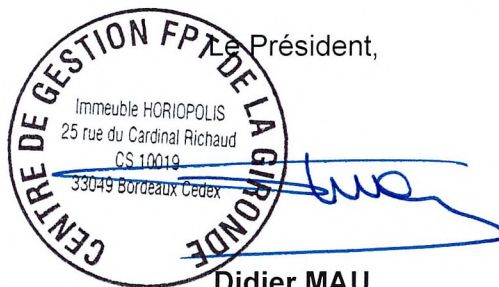 Le Président,
CENTRE DE GESTION FPT DE LA GIRONDE
Immeuble HORIOPOLIS
25 rue du Cardinal Richaud
CS 10019
33049 Bordeaux Cedex
Didier MAU